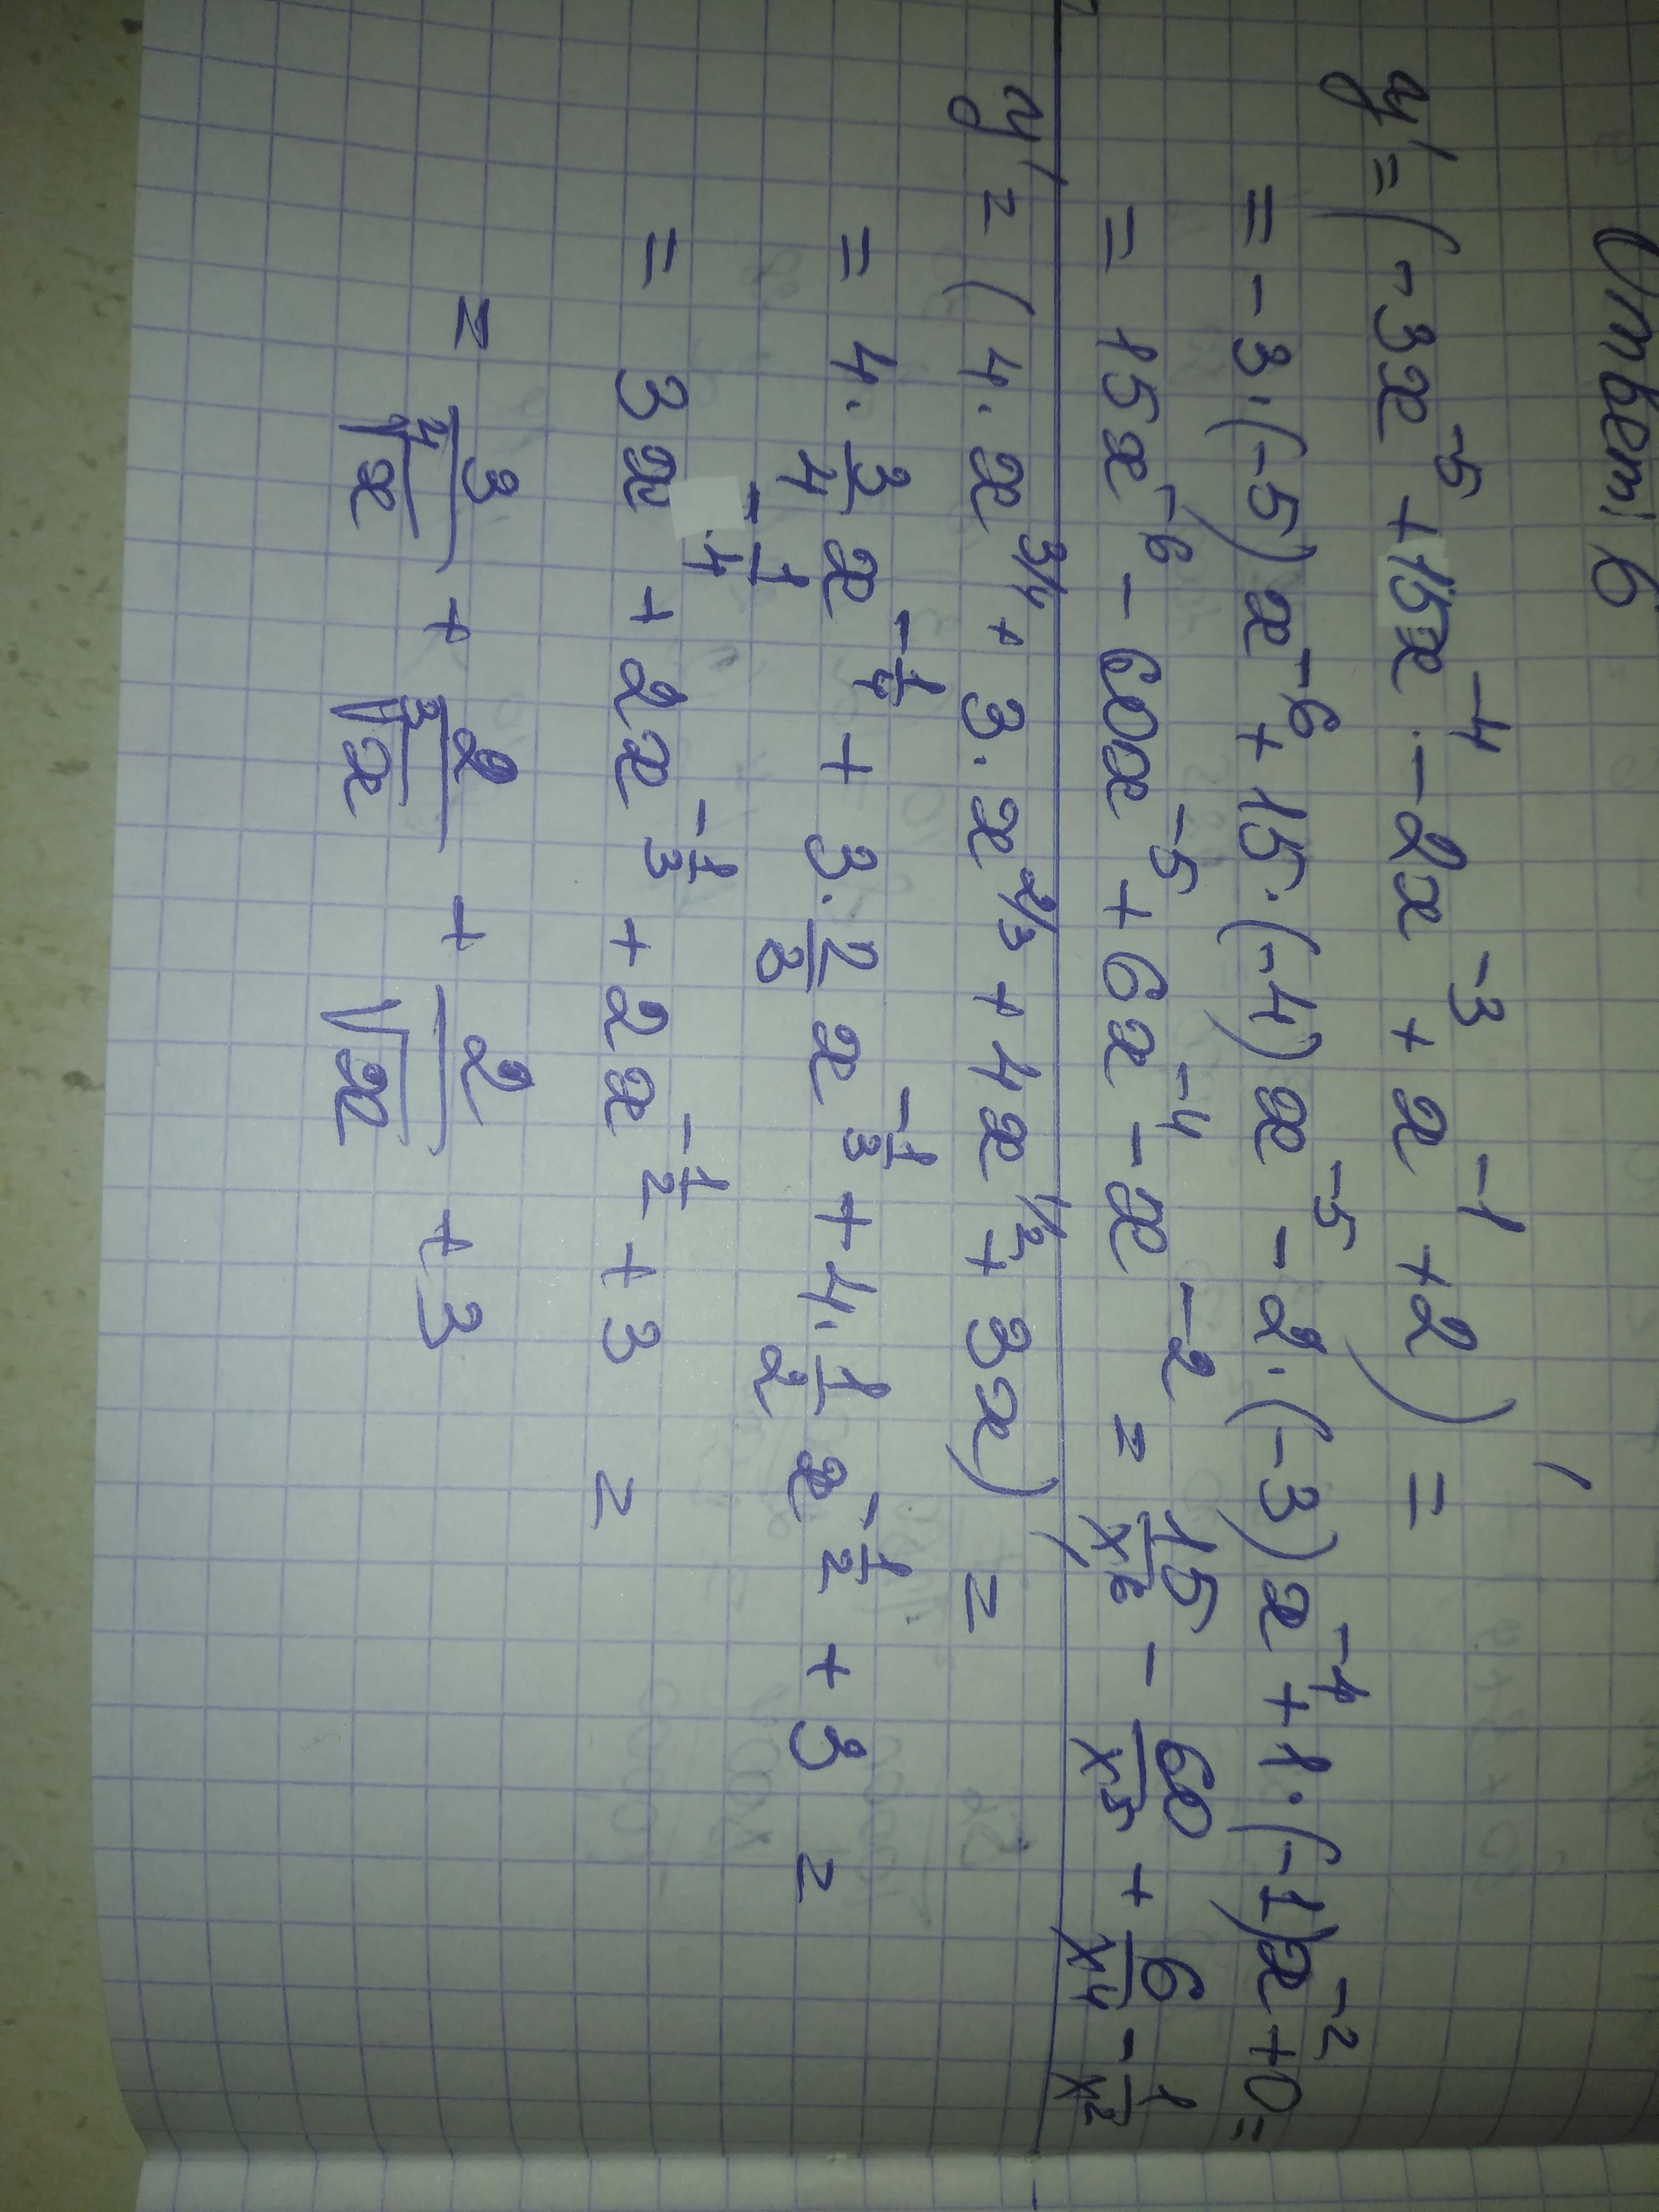 Ответ: 6
y' = (-3x⁻⁵ + 15x⁻⁴ - 2x⁻³ + x⁻¹ + 2)' =
= -3·(-5)x⁻⁶ + 15·(-4)x⁻⁵ - 2·(-3)x⁻⁴ + 1·(-1)x⁻² + 0 =
= 15x⁻⁶ - 60x⁻⁵ + 6x⁻⁴ - x⁻² = 15/x⁶ - 60/x⁵ + 6/x⁴ - 1/x²
y' = (4·x^(3/4) + 3·x^(2/3) + 4x^(1/2) + 3x)' =
= 4·3/4 x^(-1/4) + 3·2/3 x^(-1/3) + 4·1/2 x^(-1/2) + 3 =
= 3x^(-1/4) + 2x^(-1/3) + 2x^(-1/2) + 3 =
= 3/⁴√x + 2/³√x + 2/√x + 3